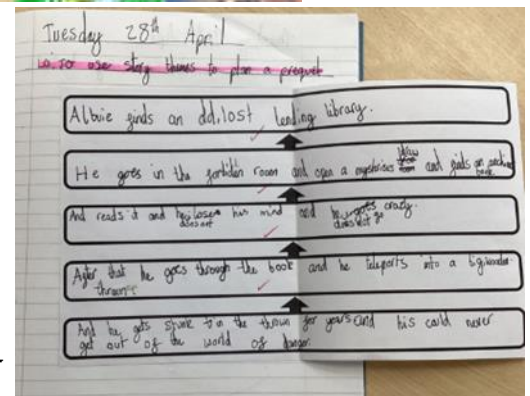 Tuesday 28th April
L.O. to use story themes to plan a prequel
Albie finds an old, lost lending library.
He goes in the forbiden room and open a mysterious and finds an
book
And reads it and his mind and he crazy.
does not does not go
After that he goes through the book and he teleports into a big wooden
thrown
And he gets stuck in the thrown for years and his could never
get out of the world of danger.